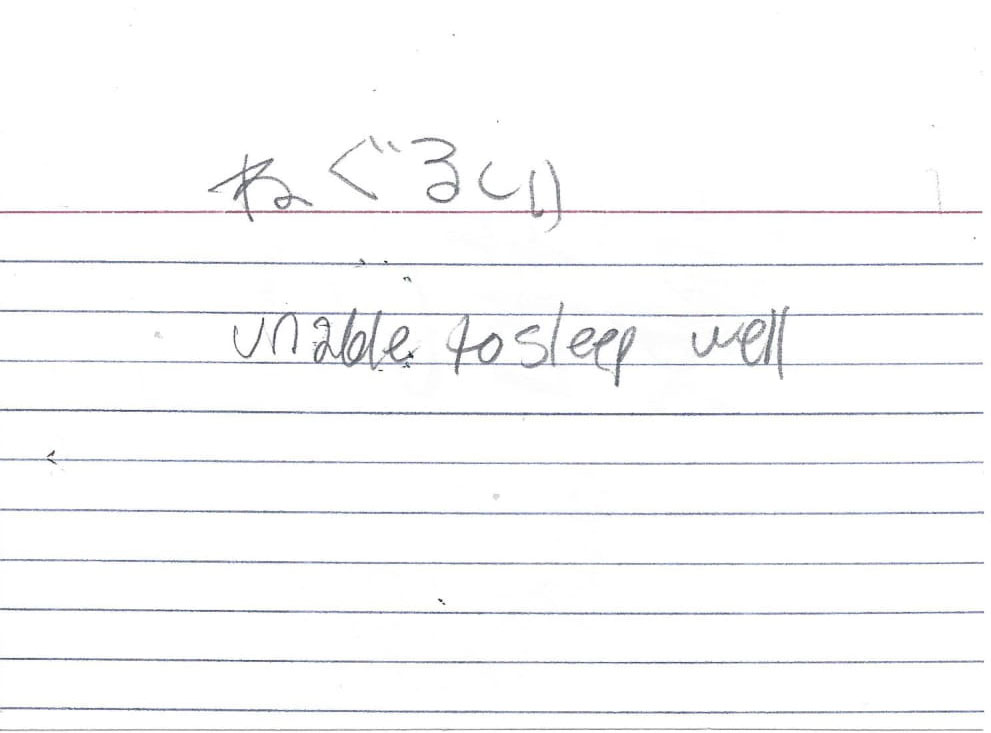 ねぐるしい
unable to sleep well